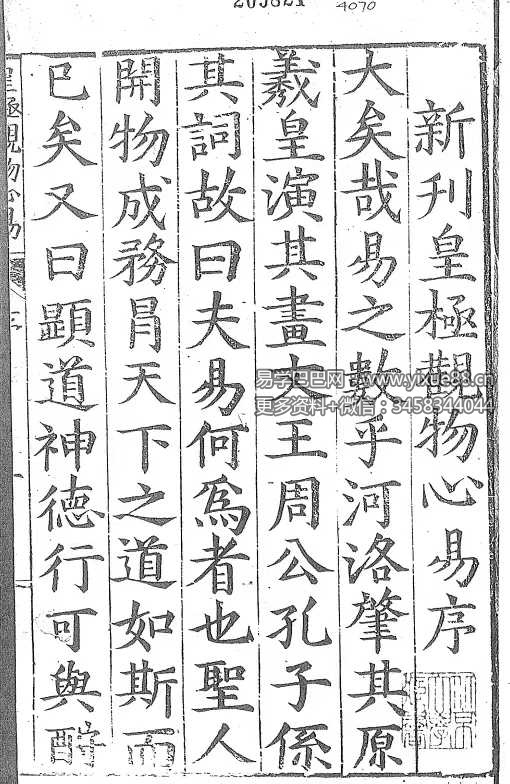 205821
4070
新刋皇極觀物心易序
大矣哉易之數乎河洛肇其原
羲皇演其畫文王周公孔子係
其詞故曰夫易何爲者也聖人
開物成務冐天下之道如斯而
已矣又曰顯道神德行可與酧
皇極觀物心易
易学巴巴网 www.yixue88.cn
更多资料+微信：3458344044